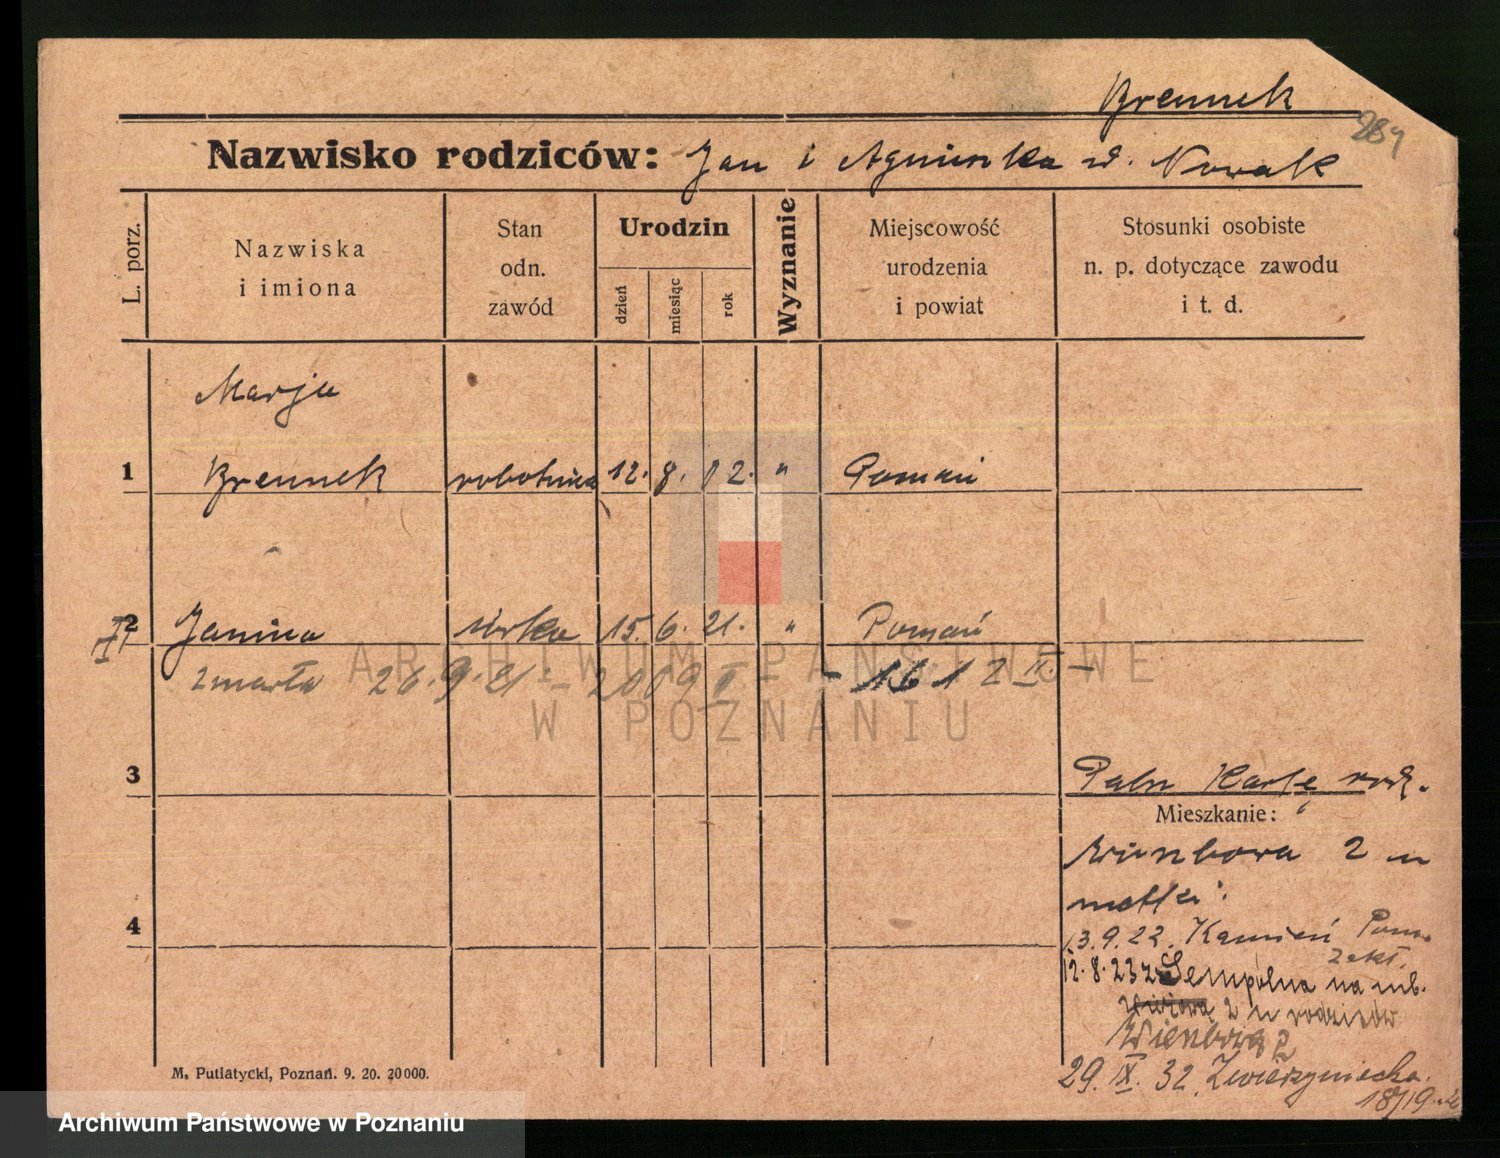 Brennek
284
Nazwisko rodziców: Jan i Agnieszka d. Nowak
L. porz.
Nazwiska
i imiona
Stan
odn.
zawód
Urodzin
dzień
miesiąc
rok
Wyznanie
Miejscowość
urodzenia
i powiat
Stosunki osobiste
n. p. dotyczące zawodu
i t. d.
Marja
1 Brennek robotnica 12. 8. 02. " Poznań
2 Janina córka 15. 6. 21. " Poznań
zmarła 26.9.21 - 2009 II - 1612 II -
ARCHIWUM PAŃSTWOWE
W POZNANIU
3
Patrz Kartę rodz.
Mieszkanie:
Wienbowa 2 u
matki.
4
13.9.22. Kamień Pom.
12.8.23 z Sempolna na
2 u rodziców
Wienbowa 2
29. IX. 32. Zwierzyniecka
18/19
M. Putiatycki, Poznań. 9. 20. 20000.
Archiwum Państwowe w Poznaniu